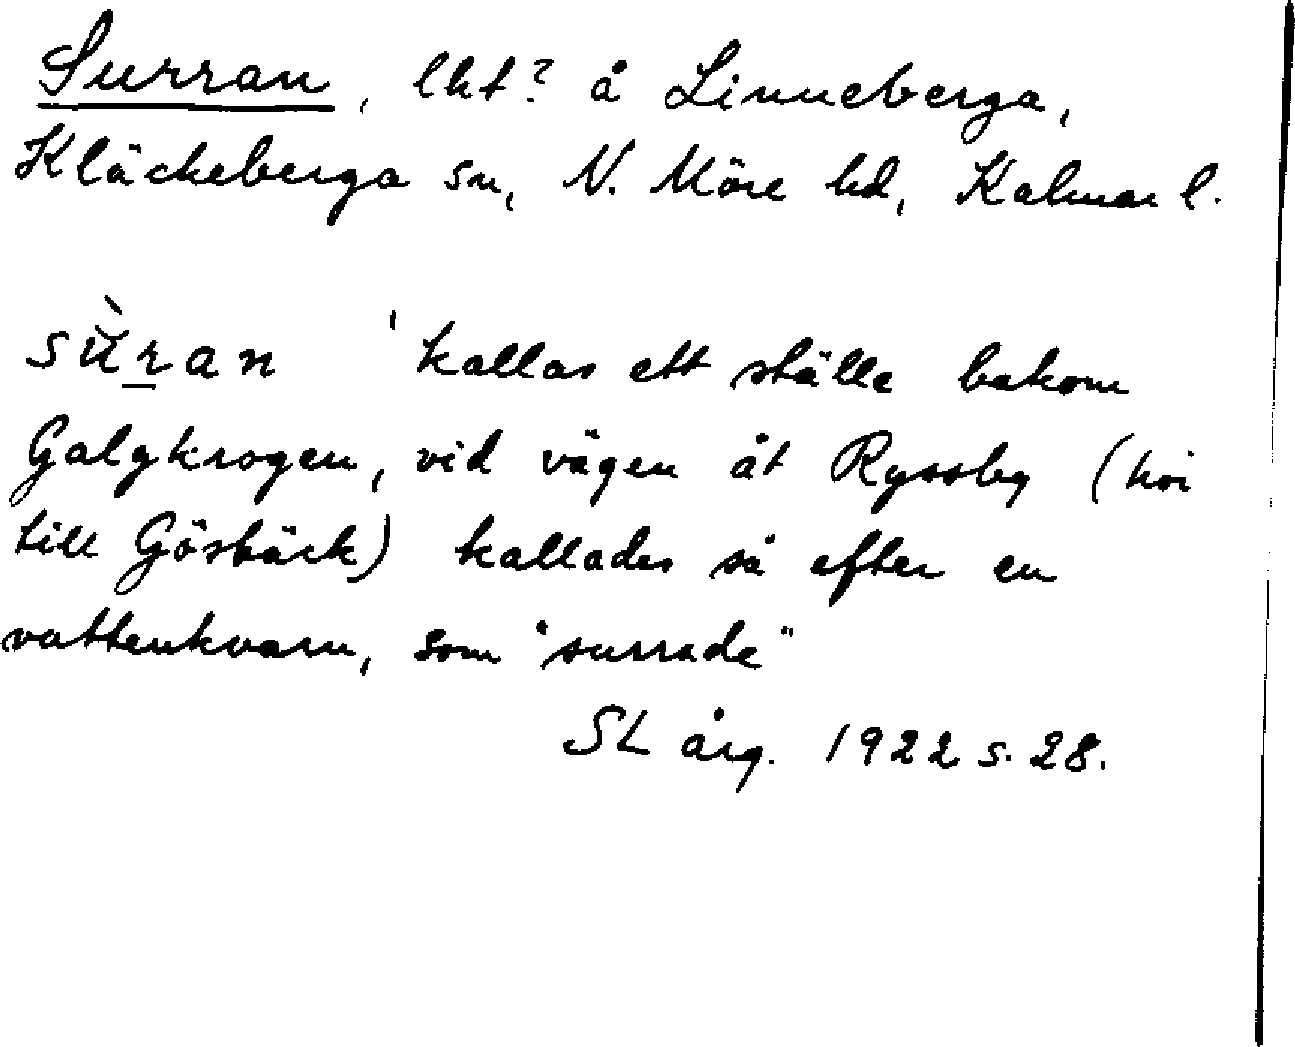 Surran, lht? å Linneberga,
Kläckeberga sn, N. Möre hd, Kalmar l.
sùran 'kallas ett ställe bakom
Galgkrogen, vid vägen åt Ryssby (hör
till Gösbäck) kallades så efter en
vattenkvarn, som "surrade"
SL årg. 1922 s. 28.